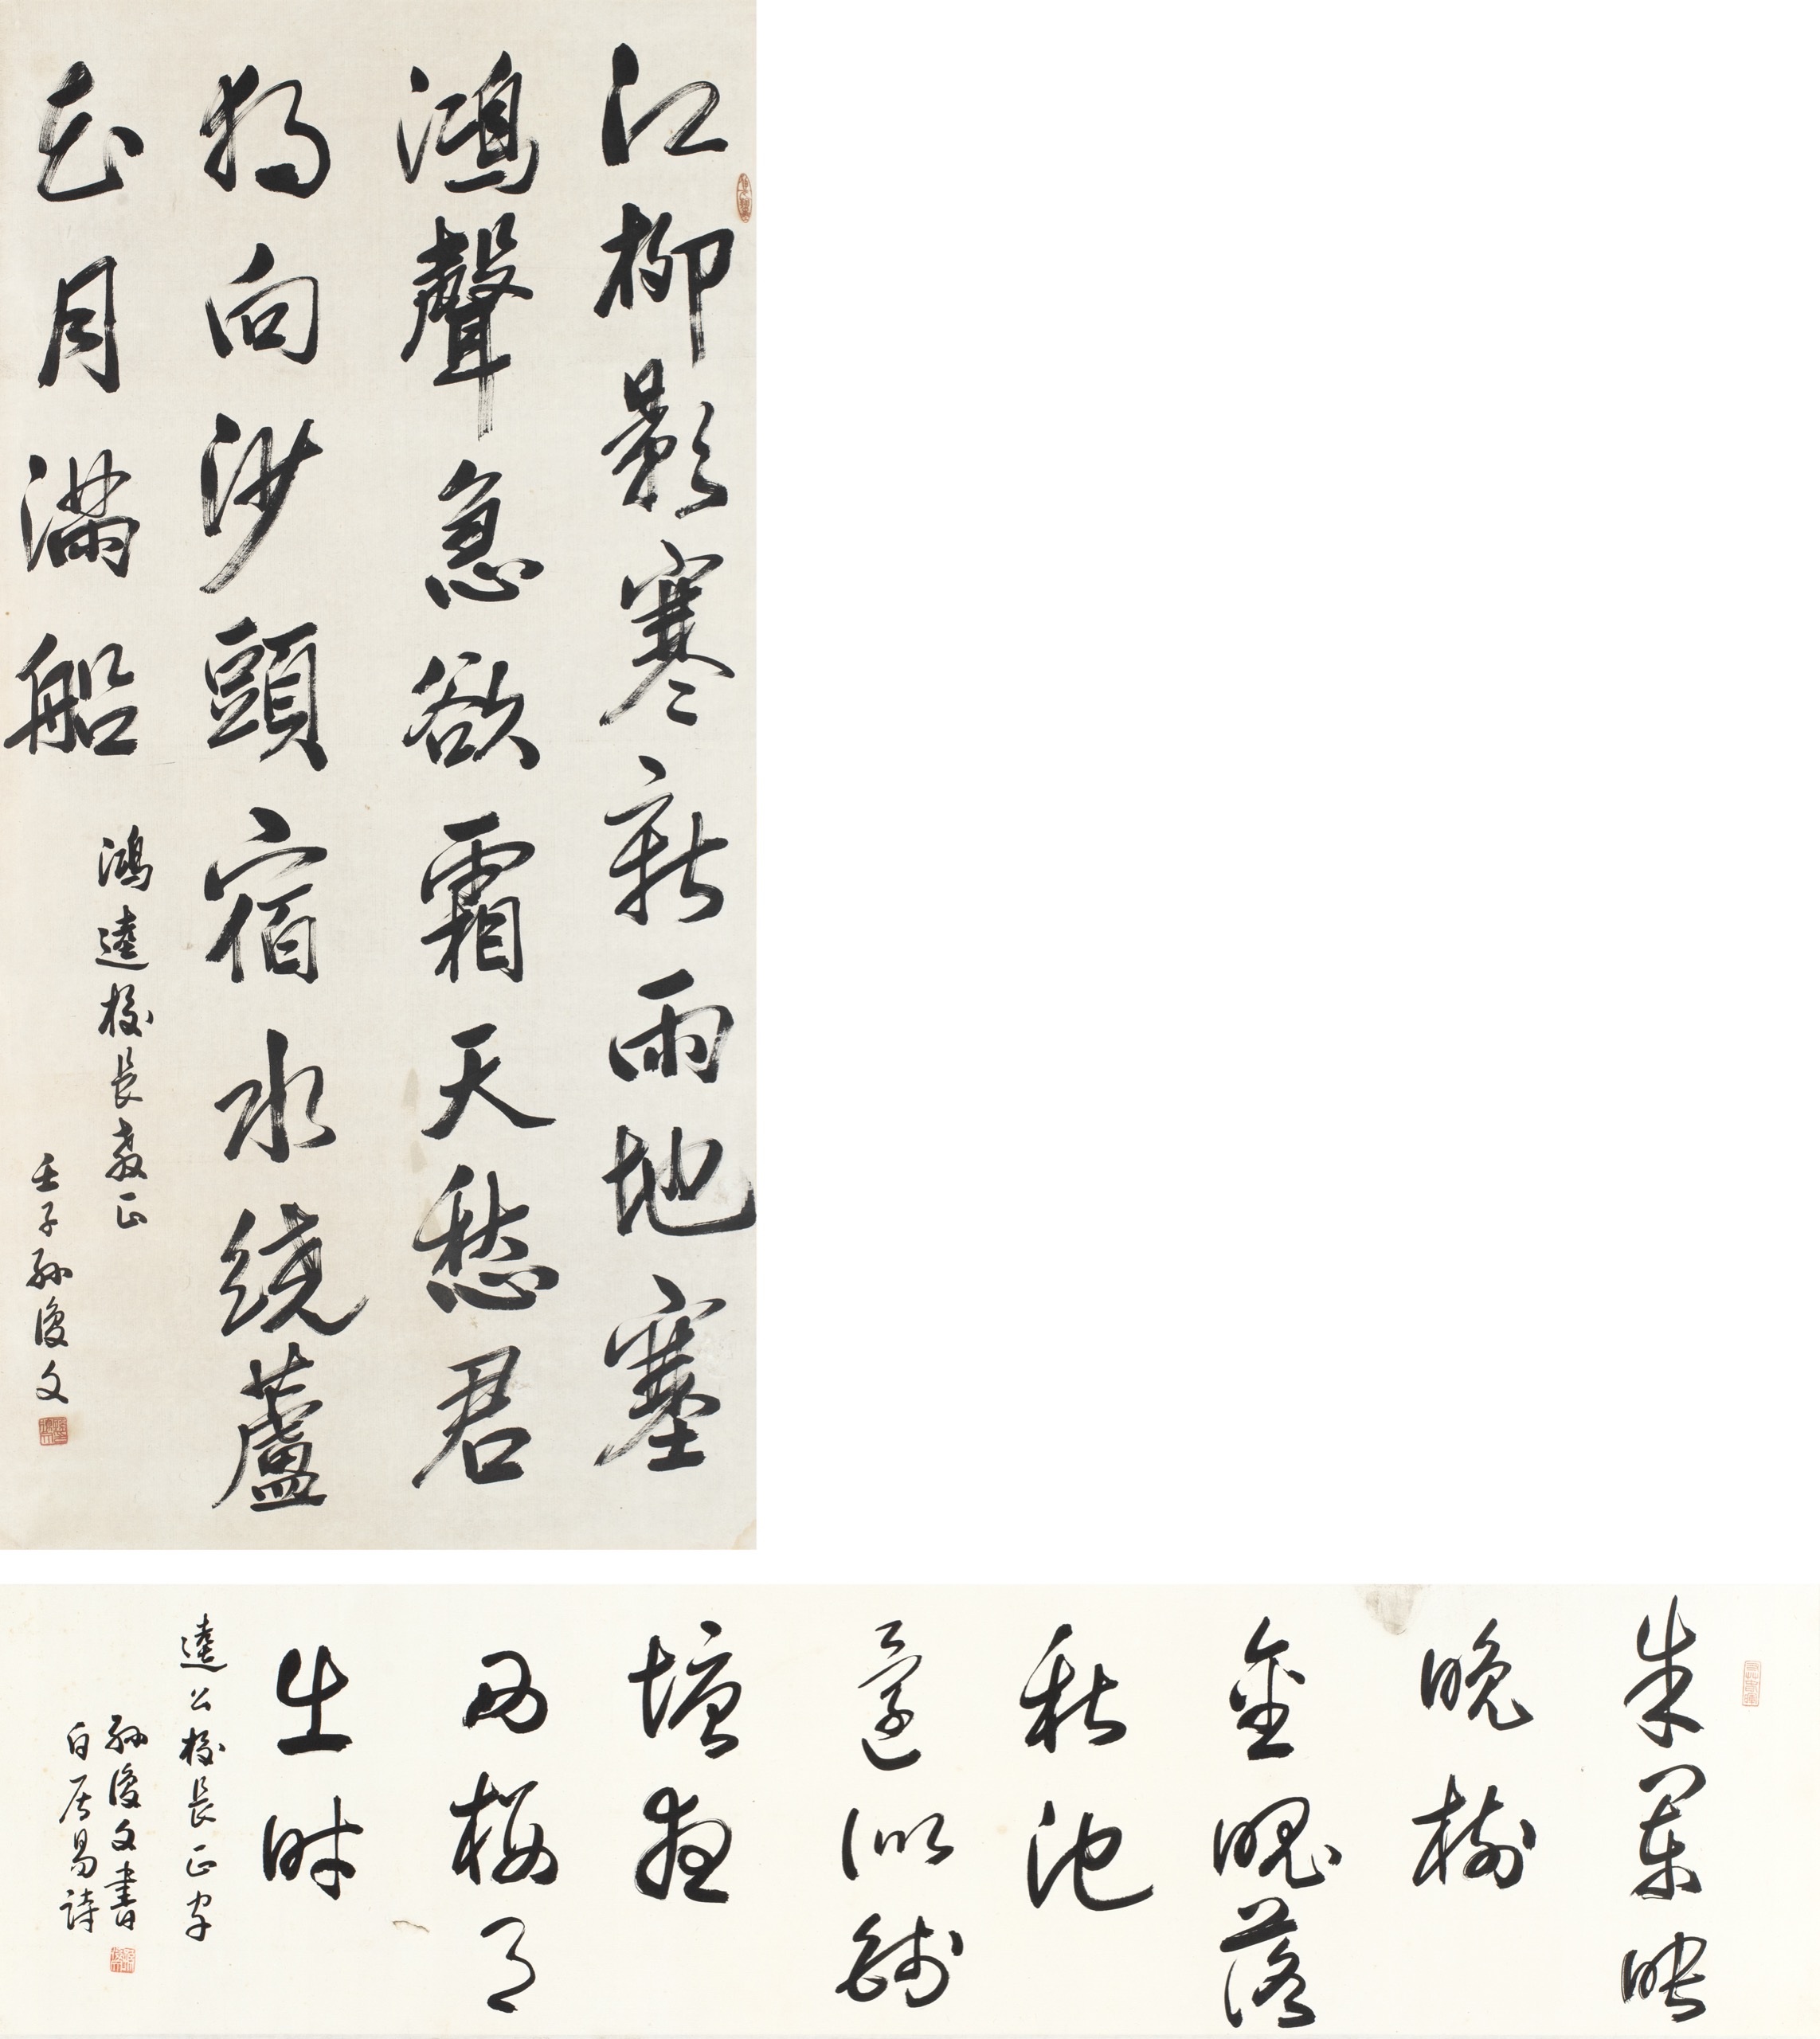 江柳影寒新雨地塞
鴻聲急欲霜天愁君
獨向沙頭宿水繞蘆
花月滿船
鴻逵校長教正
壬子孫復文
朱闌映
晚樹
金魄落
秋池
還似錢
塘夜
西樓月
出時
逵公校長正字
孫復文書
白居易詩